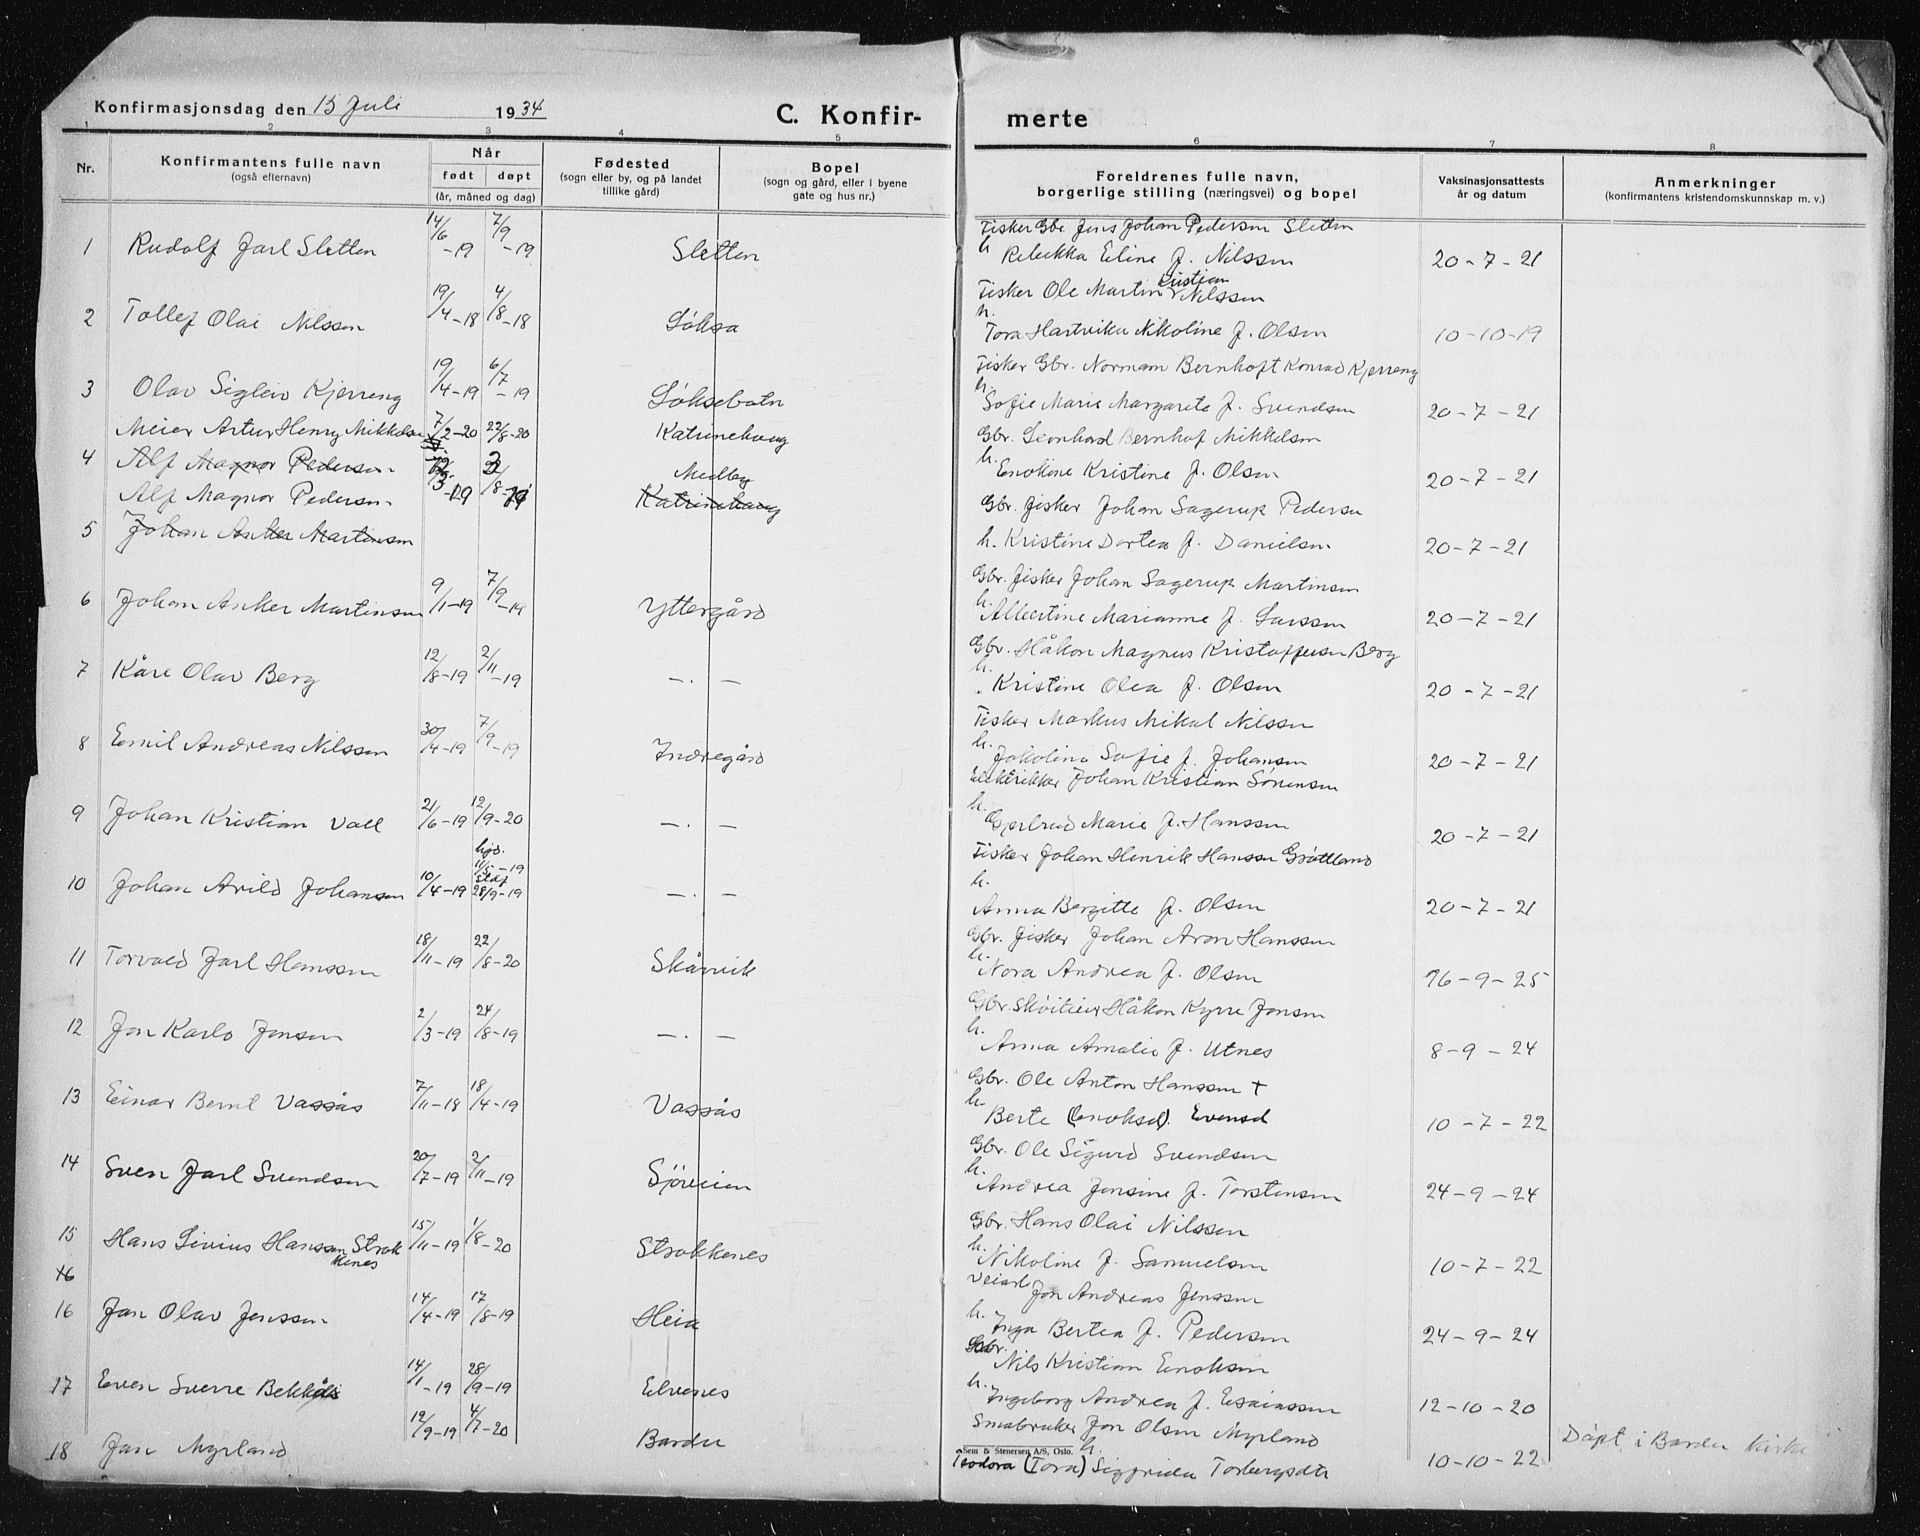 Konfirmasjonsdag den 15 Juli 1934
C. Konfir-
merte
1 2 3 4 5 6 7 8
Nr.
Konfirmantens fulle navn
(også efternavn)
Når
født døpt
(år, måned og dag)
Fødested
(sogn eller by, og på landet
tillike gård)
Bopel
(sogn og gård, eller i byene
gate og hus nr.)
Foreldrenes fulle navn,
borgerlige stilling (næringsvei) og bopel
Vaksinasjonsattests
år og datum
Anmerkninger
(konfirmantens kristendomskunnskap m. v.)
1 Rudolf Jarl Sletten 14/6-19 7/9-19 Sletten
Fisker Gbr. Jens Johan Pedersen Sletten
h. Rebekka Eline f. Nilssen 20-7-21
2 Tollef Olai Nilssen 19/4-18 4/8-18 Løksa
Fisker Ole Martin Kristian Nilssen
h. Tora Hartvika Nikoline f. Olsen 10-10-19
3 Olav Sigleiv Kjerreng 19/4-19 6/7-19 Løksebotn
Fisker Gbr. Normann Bernhoft Konrad Kjerreng
h. Sofie Marie Margarete f. Svendsen 20-7-21
4 Meier Artur Henry Mikkelsen 7/2-20 22/8-20 Katrinehaug
Alf Magnor Pedersen
Gbr. Leonhard Bernhof Mikkelsen
h. Enokine Kristine f. Olsen 20-7-21
5 Alf Magnor Pedersen Medby
Katrinehaug
Johan Anker Martinsen
Gbr. fisker Johan Sagerup Pedersen
h. Kristine Dortea f. Danielsen 20-7-21
6 Johan Anker Martinsen 9/1-19 7/9-19 Yttergård
Gbr. fisker Johan Sagerup Martinsen
h. Albertine Marianne f. Larssen 20-7-21
7 Kåre Olav Berg 12/8-19 2/11-19 —.—
Gbr. Håkon Magnus Kristoffersen Berg
h. Kristine Olea f. Olsen 20-7-21
8 Emil Andreas Nilssen 30/4-19 7/9-19 Indregård
Fisker Markus Mikal Nilssen
h. Jakolina Sofie f. Johansen 20-7-21
9 Johan Kristian Vall 21/6-19 12/9-20 —.—
Elektrikker Johan Kristian Sørensen
h. Gjertrud Marie f. Hanssen 20-7-21
10 Johan Arild Johansen 10/4-19 hjd. 11/5-19 Stadf 28/9-19 —.—
Fisker Johan Henrik Hanssen Grøttland
h. Anna Bergitte f. Olsen 20-7-21
11 Torvald Jarl Hanssen 18/11-19 22/8-20 Skårvik
Gbr. fisker Johan Aron Hanssen
h. Nora Andrea f. Olsen 16-9-25
12 Jon Karlo Jonsen 2/3-19 24/8-19 —.—
Gbr. Håkon Kyrre Jonsen
h. Anna Amalie f. Utnes 8-9-24
13 Einar Bernt Vassås 7/11-18 18/4-19 Vassås
Gbr. Ole Anton Hanssen +
h. Berte (Enoksd). Evensd 10-7-22
14 Sven Jarl Svendsen 20/7-19 2/11-19 Sjøveien
Gbr. Ole Sigurd Svendsen
h. Andrea Jensine f. Torstensen 24-9-24
15 Hans Livius Hanssen Strokkenes 15/11-19 1/8-20 Strokkenes
Gbr. Hans Olai Nilssen
h. Nikoline f. Samuelsen 10-7-22
16
16 Jan Olav Jenssen 14/4-19 17/8-19 Heia
Veiarb Jon Andreas Jenssen
h. Inga Bertea f. Pedersen 24-9-24
17 Even Sverre Bekkås 14/1-19 28/9-19 Elvenes
Gbr. Nils Kristian Enoksen
h. Ingeborg Andrea f. Esaiassen 12-10-20
18 Jan Myrland 12/9-19 4/7-20 Bardu
Småbruker Jon Olsen Myrland
Sem & Stenersen A/S, Oslo.
h. Teodora (Tora) Sigfrida Torbergsdtr 10-10-22 Døpt i Bardu kirke